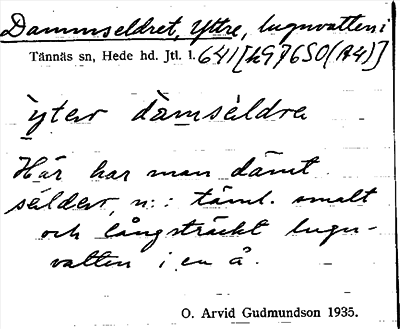 Dammseldret, Yttre, lugnvatten i
Tännäs sn, Hede hd. Jtl. l. 641[h976SO(A4)]
ỳter dàmsèldre
Här har man dämt
sélder, n.: täml. smalt
och långsträckt lugn-
vatten i en å.
O. Arvid Gudmundson 1935.